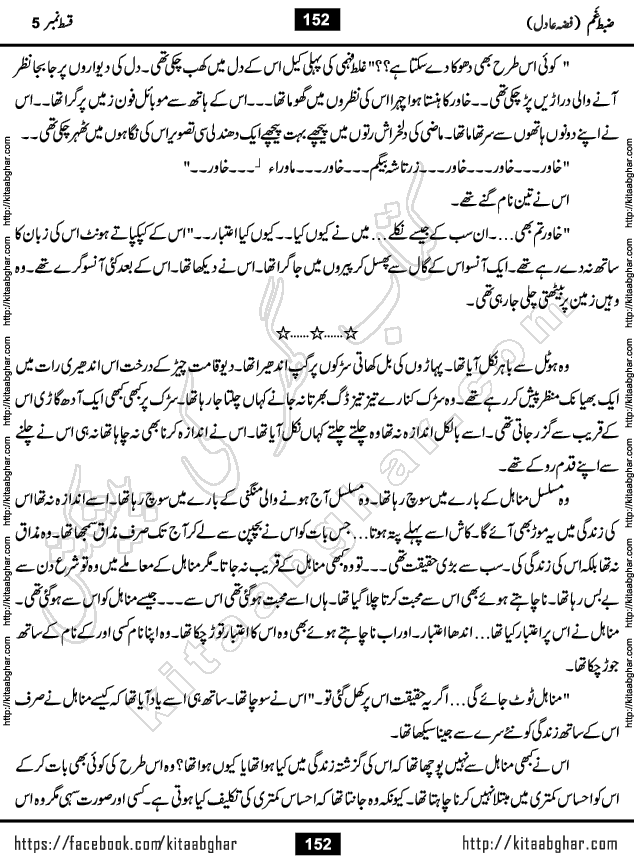 ضبطِ غم (فضہ عادل)
152
قسط نمبر 5
" کوئی اس طرح بھی دھوکا دے سکتا ہے؟؟" غلط فہمی کی پہلی کیل اس کے دل میں کھب چکی تھی۔ دل کی دیواروں پر جا بجا نظر
آنے والی دراڑیں پڑ چکی تھی۔۔خاور کا ہنستا ہوا چہرا اس کی نظروں میں گھوما تھا۔۔اس کے ہاتھ سے موبائل فون زمیں پر گرا تھا۔۔اس
نے اپنے دونوں ہاتھوں سے سر تھاما تھا۔ ماضی کی دلخراش رتوں میں پیچھے بہت پیچھے ایک دھندلی سی تصویر اس کی نگاہوں میں ٹھہر چکی تھی۔۔
"خاور۔۔۔خاور۔۔۔خاور۔۔۔۔زرتاشہ بیگم۔۔۔خاور۔۔۔۔ماوراء ۔۔۔خاور۔۔"
اس نے تین نام گنے تھے۔
"خاور تم بھی...۔ان سب کے جیسے نکلے... میں نے کیوں کیا۔۔کیوں کیا اعتبار۔۔" اس کے کپکپاتے ہونٹ اس کی زبان کا
ساتھ نہ دے رہے تھے۔ ایک آنسو اس کے گال سے پھسل کر پیروں میں جا گرا تھا۔ اس نے دیکھا تھا۔ اس کے بعد کئی آنسو گرے تھے۔ وہ
وہیں زمین پر بیٹھتی چلی جا رہی تھی۔
☆......☆......☆
وہ ہوٹل سے باہر نکل آیا تھا۔ پہاڑوں کی بل کھاتی سڑکوں پر گپ اندھیرا تھا۔ دیوقامت چیڑ کے درخت اس اندھیری رات میں
ایک بھیانک منظر پیش کر رہے تھے۔ وہ سڑک کنارے تیز تیز ڈگ بھرتا نہ جانے کہاں چلتا جا رہا تھا۔ سڑک پر کبھی کبھی ایک آدھ گاڑی اس
کے قریب سے گزر جاتی تھی۔ اسے بالکل اندازہ نہ تھا وہ چلتے چلتے کہاں نکل آیا تھا۔ اس نے اندازہ کرنا بھی نہ چاہا تھا نہ ہی اس نے چلنے
سے اپنے قدم روکے تھے۔
وہ مسلسل مناہل کے بارے میں سوچ رہا تھا۔ وہ مسلسل آج ہونے والی منگنی کے بارے میں سوچ رہا تھا۔ اسے اندازہ نہ تھا اس
کی زندگی میں یہ موڑ بھی آئے گا۔ کاش اسے پہلے پتہ ہوتا... جس بات کو اس نے بچپن سے لے کر آج تک صرف مذاق سمجھا تھا۔ وہ مذاق
نہ تھا بلکہ اس کی زندگی کی۔ سب سے بڑی حقیقت تھی۔۔۔تو وہ کبھی مناہل کے قریب نہ جاتا۔ مگر مناہل کے معاملے میں وہ تو شرع دن سے
بے بس رہا تھا۔ نا چاہتے ہوئے بھی اس سے محبت کرتا چلا گیا تھا۔ ہاں اسے محبت ہو گئی تھی اس سے ۔۔۔۔جیسے مناہل کو اس سے ہو گئی تھی۔
مناہل نے اس پر اعتبار کیا تھا... اندھا اعتبار۔ اور اب نا چاہتے ہوئے بھی وہ اس کا اعتبار توڑ چکا تھا۔ وہ اپنا نام کسی اور کے نام کے ساتھ
جوڑ چکا تھا۔
"مناہل ٹوٹ جائے گی... اگر یہ حقیقت اس پر کھل گئی تو۔" اس نے سوچا تھا۔ ساتھ ہی اسے یاد آیا تھا کہ کیسے مناہل نے صرف
اس کے ساتھ زندگی کو نئے سرے سے جینا سیکھا تھا۔
اس نے کبھی مناہل سے نہیں پوچھا تھا کہ اس کی گزشتہ زندگی میں کیا ہوا تھا یا کیوں ہوا تھا؟ وہ اس طرح کی کوئی بھی بات کر کے
اس کو احساس کمتری میں مبتلا نہیں کرنا چاہتا تھا۔ کیونکہ وہ جانتا تھا کہ احساس کمتری کی تکلیف کیا ہوتی ہے۔ کسی اور صورت سہی مگر وہ اس
http://kitaabghar.com http://kitaabghar.com http://kitaabghar.com http://kitaabghar.com http://kitaabghar.com http://kitaabghar.com
http://kitaabghar.com http://kitaabghar.com http://kitaabghar.com http://kitaabghar.com http://kitaabghar.com http://kitaabghar.com
کتاب گھر کی پیشکش
kitaabghar.com
https://facebook.com/kitaabghar
152
http://kitaabghar.com